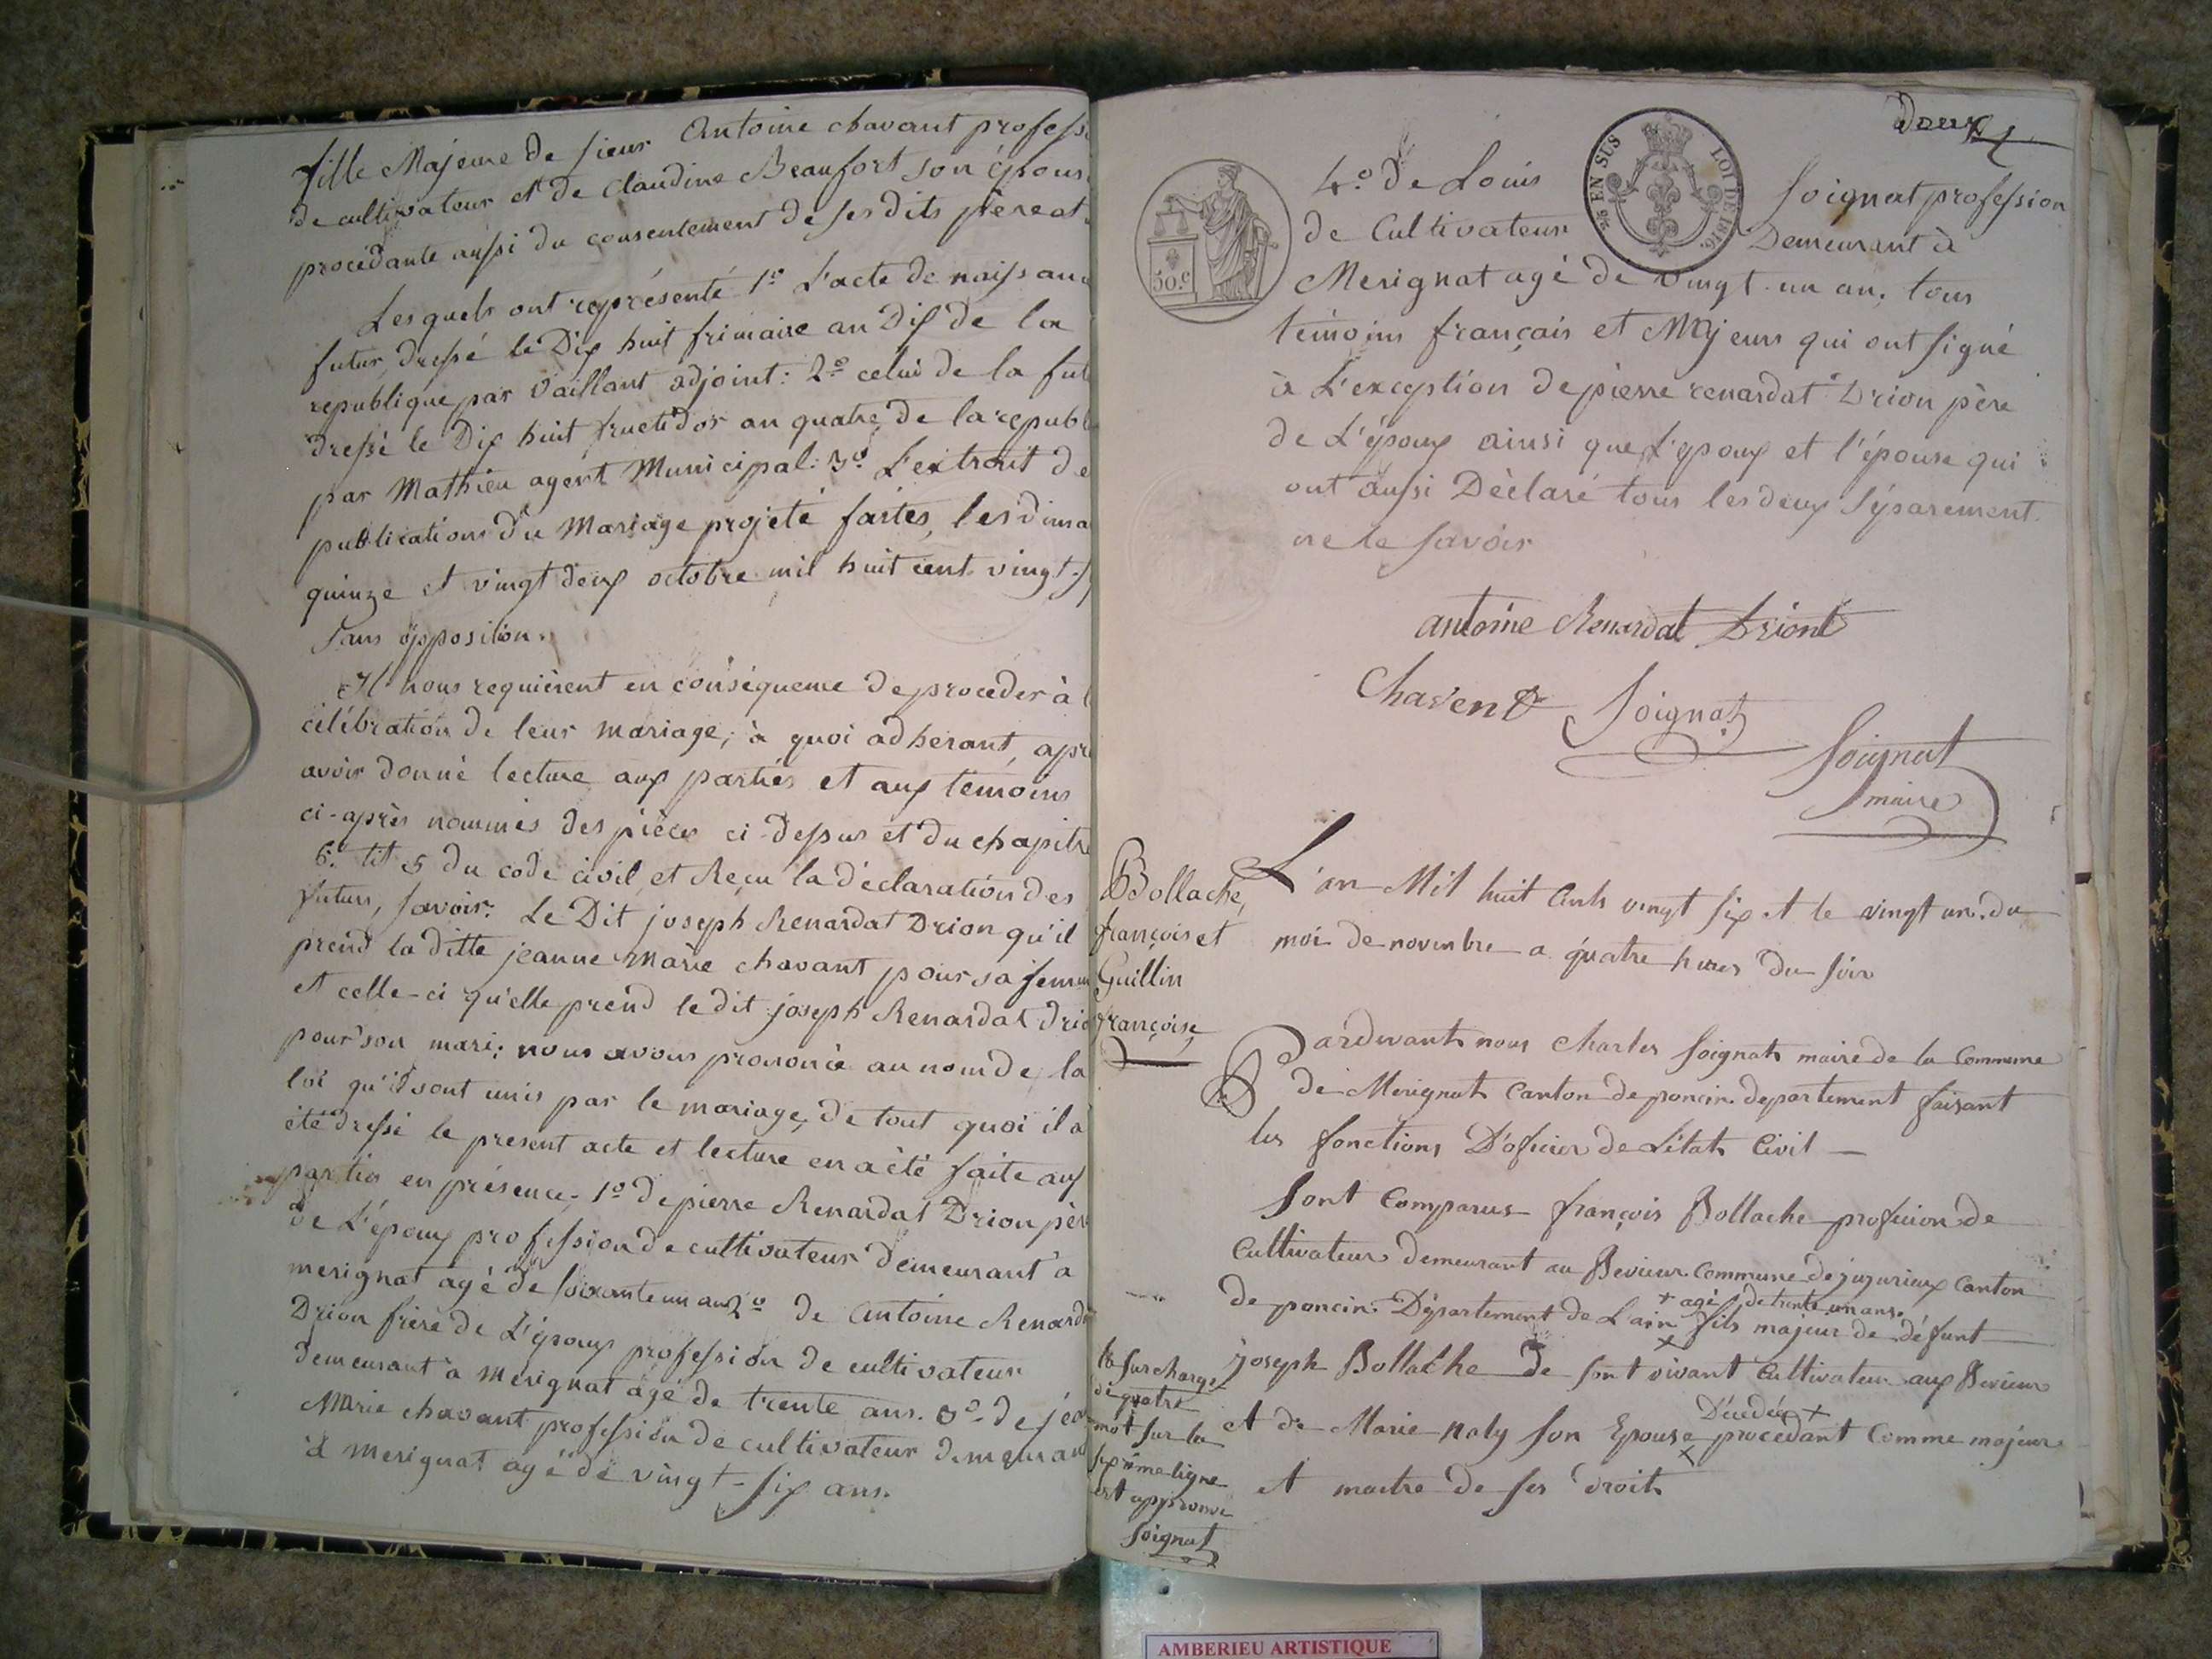 fille Majeure de sieur Antoine chavant profess
de cultivateur et de Claudine Beaufort son épous
procédante aussi du consentement de ses dits père et
Lesquels ont représenté 1.º L'acte de naissan
futur, dressé le Dix huit frimaire an Dix de la
republique par Vaillant adjoint: 2.º celui de la fut
dressé le Dix huit fructidor an quatre de la republ
par Mathieu agent Municipal: 3.º L'extrait de
publications du Mariage projeté faites, les dima
quinze et vingt deux octobre mil huit cent vingt-s
sans opposition.
Il nous requièrent en conséquence de procéder à l
célébration de leur mariage; à quoi adhérant, apr
avoir donné lecture aux parties et aux témoins
ci-après nommés des pièces ci-dessus et du chapitre
6.º tit 5 du code civil, et Reçu la déclaration des
futurs, savoir: Le Dit joseph Renardat Drion qu'il
prend la ditte jeanne Marie chavant pour sa femm
et celle-ci qu'elle prend le dit joseph Renardat drio
pour son mari; nous avons prononcé au nom de la
loi qu'il sont unis par le mariage, de tout quoi il a
été dressé le present acte et lecture en a été faite aux
parties en présence. 1.º de pierre Renardat Drion pèr
de L'époux profession de cultivateur demeurant à
merignat agé de soixante un an 2.º de Antoine Renard
Drion frère de L'époux profession de cultivateur
demeurant à merignat agé de trente ans. 3.º de jea
Marie chavant profession de cultivateur demeuran
à merignat agé de vingt-six ans.
deux
EN SUS
LOI DE 1816.
50.c
4.º de Louis Soignat profession
de Cultivateur Demeurant à
Merignat agé de vingt-un an, tous
témoins français et Majeurs qui ont signé
à L'exception de pierre renardat Drion père
de L'époux ainsi que L'epoux et l'épouse qui
ont aussi Déclaré tous les deux séparement
ne le savoir
antoine Renardat Driont
Chavent Soignat
Soignat
maire
Bollache,
françois et
Guillin
françoise,
L'an Mil huit Cents vingt six et le vingt un du
moi de novenbre a quatre hures du soir
Pardevant nous Charles Soignat maire de la Commune
de Merignat Canton de poncin departement faisant
les fonctions D'oficier de L'état Civil —
Sont Comparus françois Bollache profision de
Cultivateur demeurant au Bevieur Commune de jujurieux Canton
+ agé de trente un ans
de poncin Département de L'ain fils majeur de défunt
joseph Bollache de son vivant Cultivateur aux Bevieur
Décedée +
et de Marie naly son Epouse procedant Comme majeur
et maitre de ses droit
la surcharge
de quatre
mot sur la
sexième ligne
est approuvé
Soignat
AMBERIEU ARTISTIQUE